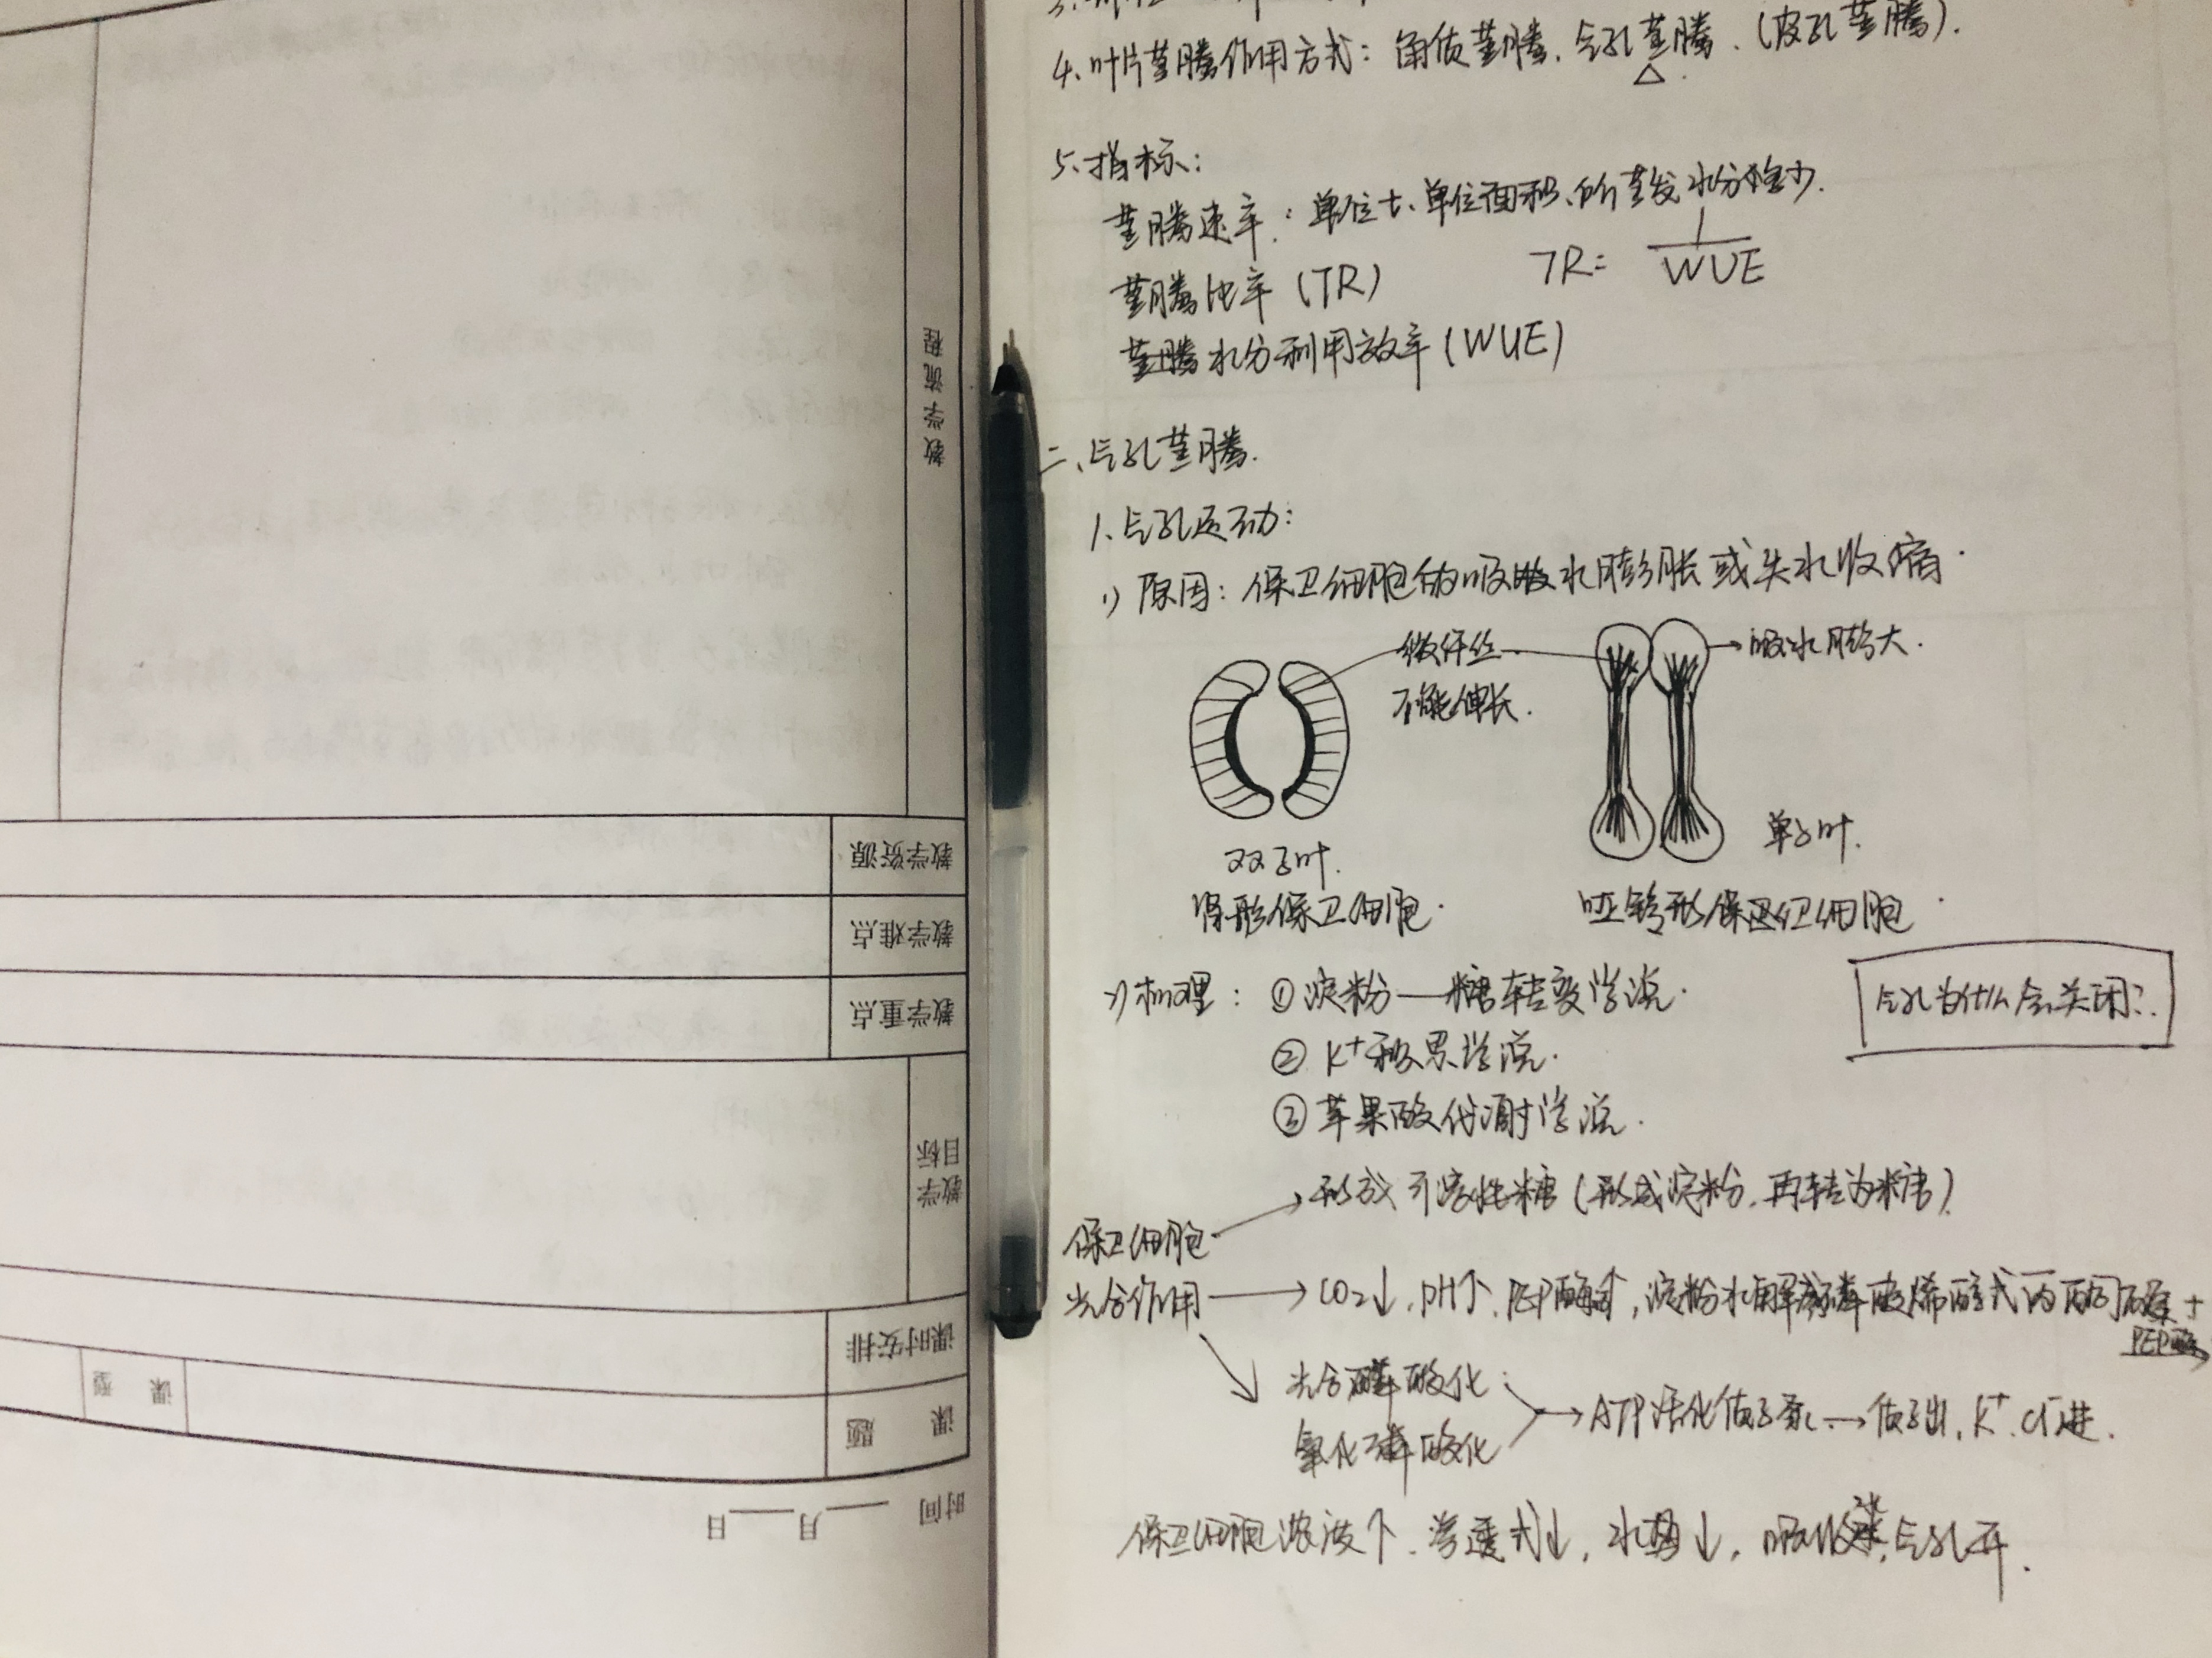 4、叶片蒸腾作用方式：角质蒸腾、气孔蒸腾、(皮孔蒸腾).
△
5、指标：
蒸腾速率：单位t、单位面积、所蒸发水分多少.
蒸腾比率(TR)
TR= 1/WUE
蒸腾水分利用效率(WUE)
二、气孔蒸腾.
1、气孔运动：
1) 原因：保卫细胞的吸水膨胀或失水收缩.
微纤丝
不能伸长.
吸水膨大.
双子叶.
肾形保卫细胞.
单子叶.
哑铃形保卫细胞
2) 机理：①淀粉—糖转变学说.
②K⁺积累学说.
③苹果酸代谢学说.
气孔为什么会关闭？
保卫细胞
光合作用
→形成可溶性糖(形成淀粉,再转为糖).
→CO₂↓,pH↑,PEP酶↑,淀粉水解磷酸烯醇式丙酮酸+
PEP酶
光合磷酸化
氧化磷酸化
→ATP活化质子泵→质子出,K⁺Cl⁻进.
保卫细胞浓度↑.渗透式↓,水势↓,吸水,气孔开.
教学流程
教学资源
教学难点
教学重点
教学目标
课时安排
课型
课题
时间 ___月___日